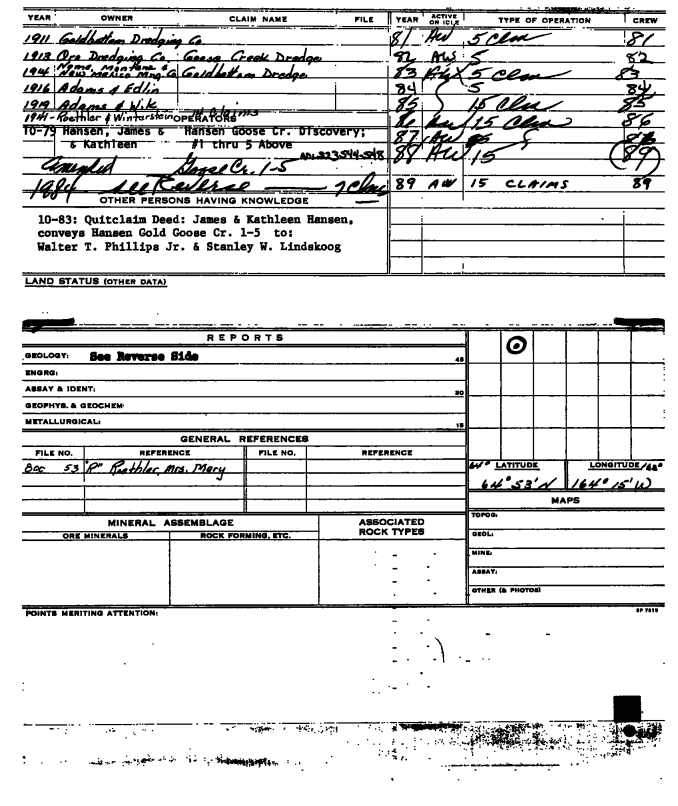 YEAR OWNER CLAIM NAME FILE YEAR ACTIVE OR IDLE TYPE OF OPERATION CREW
1911 Goldbottom Dredging Co 81 AW 5 Clm 81
1913 Oro Dredging Co. Goose Creek Dredge 82 AW 5 82
1914 Nome, Montana & New Mexico Mng. Co Goldbottom Dredge 83 5 Clm 83
1916 Adams & Edlin 84 5 84
1919 Adams & Wik 85 15 Clm 85
1941- Roethler & Winterstein OPERATORS 14 Claims 86 AW 15 Clm 86
10-79 Hansen, James & Hansen Goose Cr. Discovery; 87 AW
& Kathleen #1 thru 5 Above 88 AW 15 89
ADL-323544-548
Amended Goose Cr. 1-5
1984 See Reverse 7 Clms 89 AW 15 CLAIMS 89
OTHER PERSONS HAVING KNOWLEDGE
10-83: Quitclaim Deed: James & Kathleen Hansen,
conveys Hansen Gold Goose Cr. 1-5 to:
Walter T. Phillips Jr. & Stanley W. Lindskoog
LAND STATUS (OTHER DATA)
REPORTS
GEOLOGY: See Reverse Side 45
ENGRG:
ASSAY & IDENT: 30
GEOPHYS. & GEOCHEM:
METALLURGICAL: 15
GENERAL REFERENCES
FILE NO. REFERENCE FILE NO. REFERENCE
Doc 53 "R" Roethler, Mrs. Mary
64° LATITUDE LONGITUDE/68°
64° 53' N 164° 15' W
MAPS
TOPOG:
GEOL:
MINE:
ASSAY:
OTHER (& PHOTOS)
MINERAL ASSEMBLAGE ASSOCIATED ROCK TYPES
ORE MINERALS ROCK FORMING, ETC.
POINTS MERITING ATTENTION: